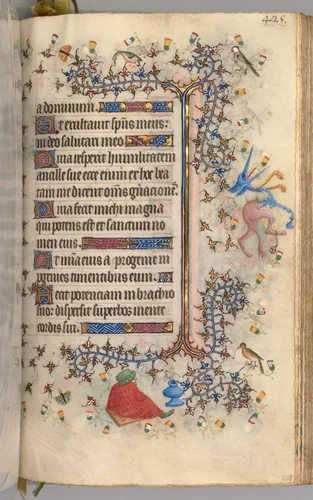 425.
a dominum.
Et exultavit sp̄us meus:
in deo salutari meo
Quia respexit humilitatem
ancille sue ecce enim ex hoc bea
tam me dicent om̄s gn̄acione
Quia fecit michi magna
qui potens est et sanctum no
men eius.
Et mīa eius a progenie in
progenies timentibus eum.
Fecit potenciam in brachio
suo: dispersit superbos mente
cordis sui.